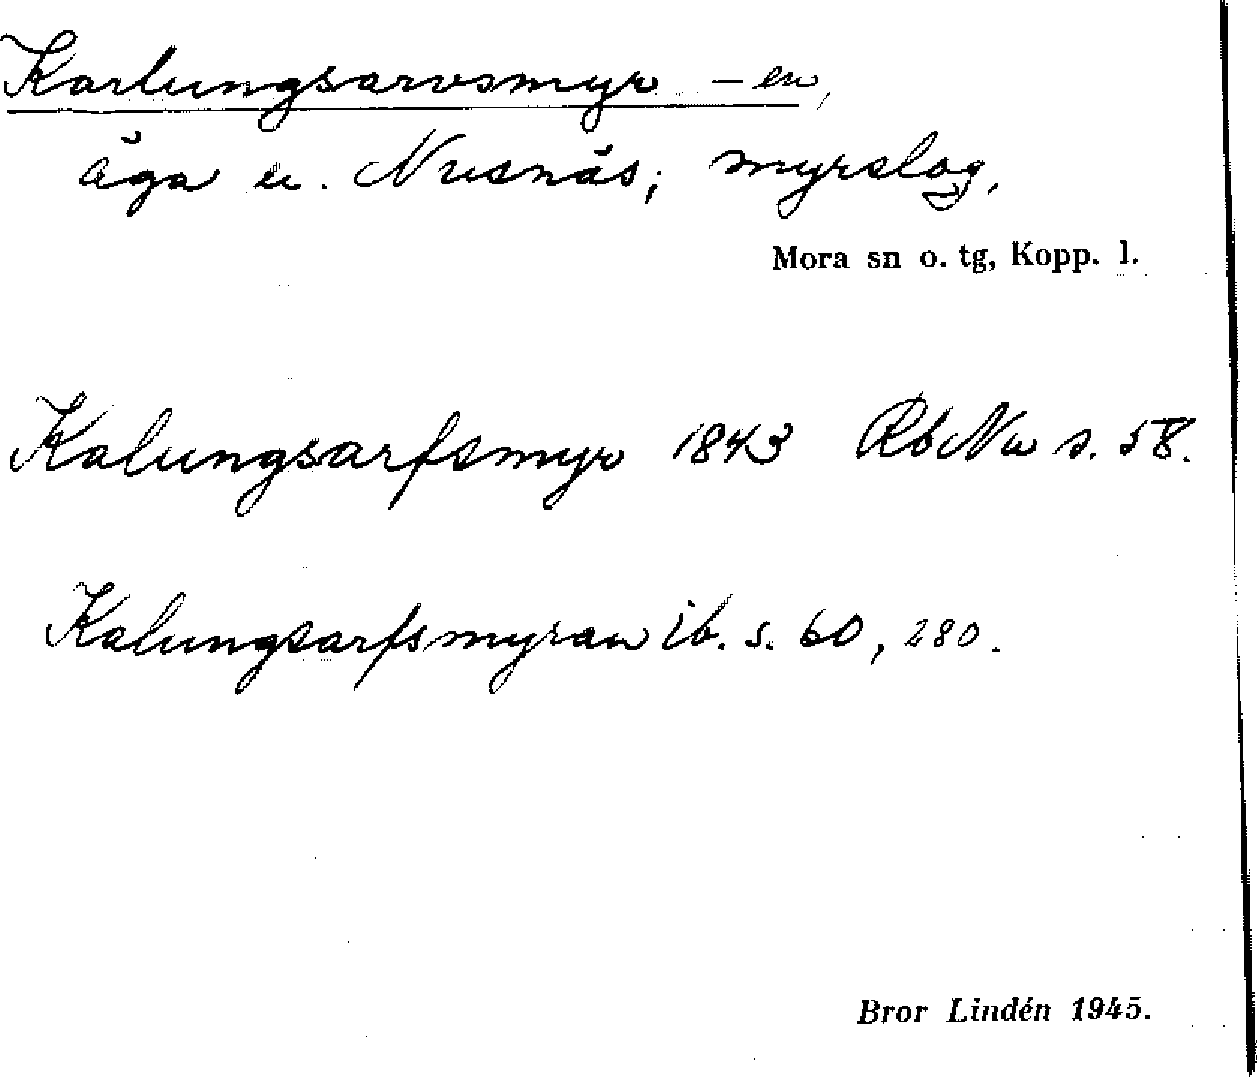 Karlungsarvsmyr -en,
äga u. Nusnäs; myrslog,
Mora sn o. tg, Kopp. l.
Kalungsarfsmyr 1843 RbNu s. 58.
Kalungsarfsmyran ib. s. 60, 280.
Bror Lindén 1945.